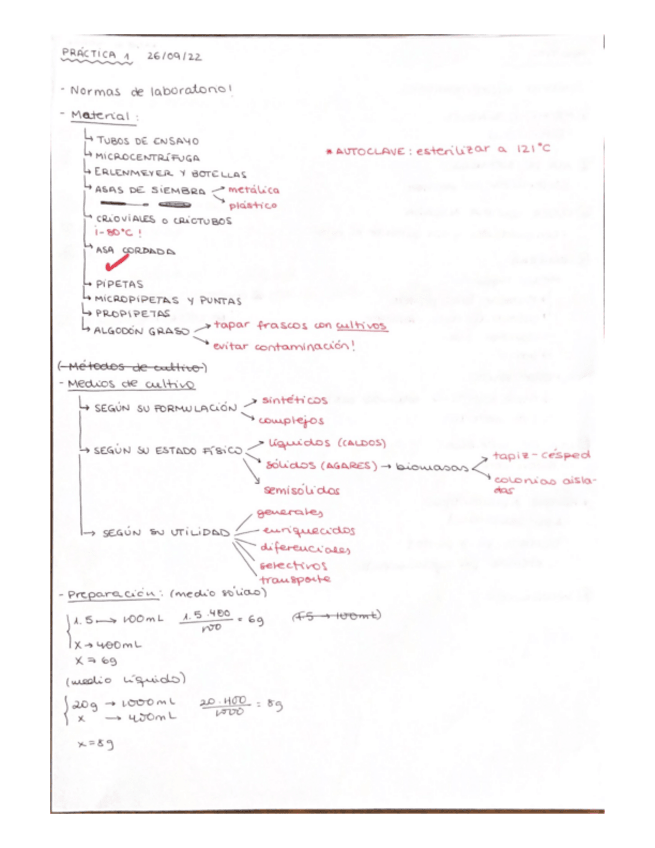 PRÁCTICA 1 26/09/22
- Normas de laboratorio!
- Material:
↳ TUBOS DE ENSAYO
↳ MICROCENTRÍFUGA
* AUTOCLAVE: esterilizar a 121°C
↳ ERLENMEYER Y BOTELLAS
↳ ASAS DE SIEMBRA → metálica
→ plástico
↳ CRIOVIALES O CRIOTUBOS
¡-80°C!
↳ ASA CORDADA
↳ PIPETAS
↳ MICROPIPETAS Y PUNTAS
↳ PROPIPETAS
↳ ALGODÓN GRASO → tapar frascos con cultivos
→ evitar contaminación!
(-Métodos de cultivo)
- Medios de cultivo
↳ SEGÚN SU FORMULACIÓN → sintéticos
→ complejos
↳ SEGÚN SU ESTADO FÍSICO → líquidos (CALDOS)
→ sólidos (AGARES) → biomasas → tapiz-césped
→ colonias aisla-
das
→ semisólidos
→ SEGÚN SU UTILIDAD generales
enriquecidos
diferenciales
selectivos
transporte
- Preparación: (medio sólido)
1.5 → 100mL 1.5·400/100 = 6g (1.5 → 100mL)
x → 400mL
x = 6g
(medio líquido)
20g → 1000mL 20·400/1000 = 8g
x → 400mL
x = 8g